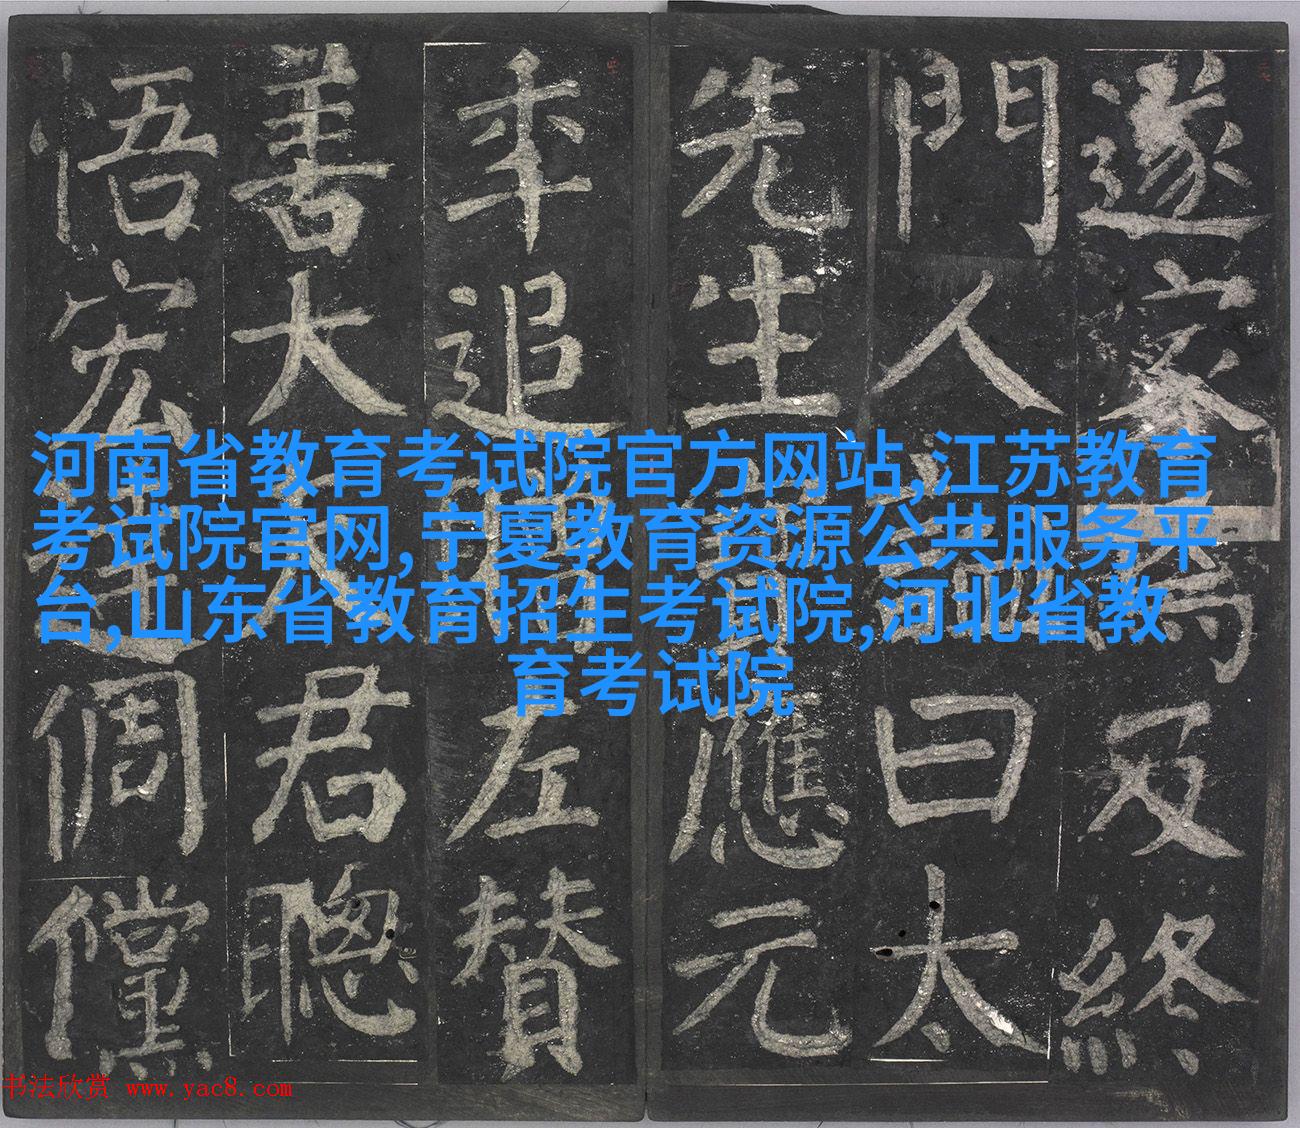 遂家焉及終
門人曰太
先生應元
年追左贊
善大夫君聰
悟宏達倜儻
河南省教育考试院官方网站,江苏教育
考试院官网,宁夏教育资源公共服务平
台,山东省教育招生考试院,河北省教
育考试院
书法欣赏 www.yac8.com